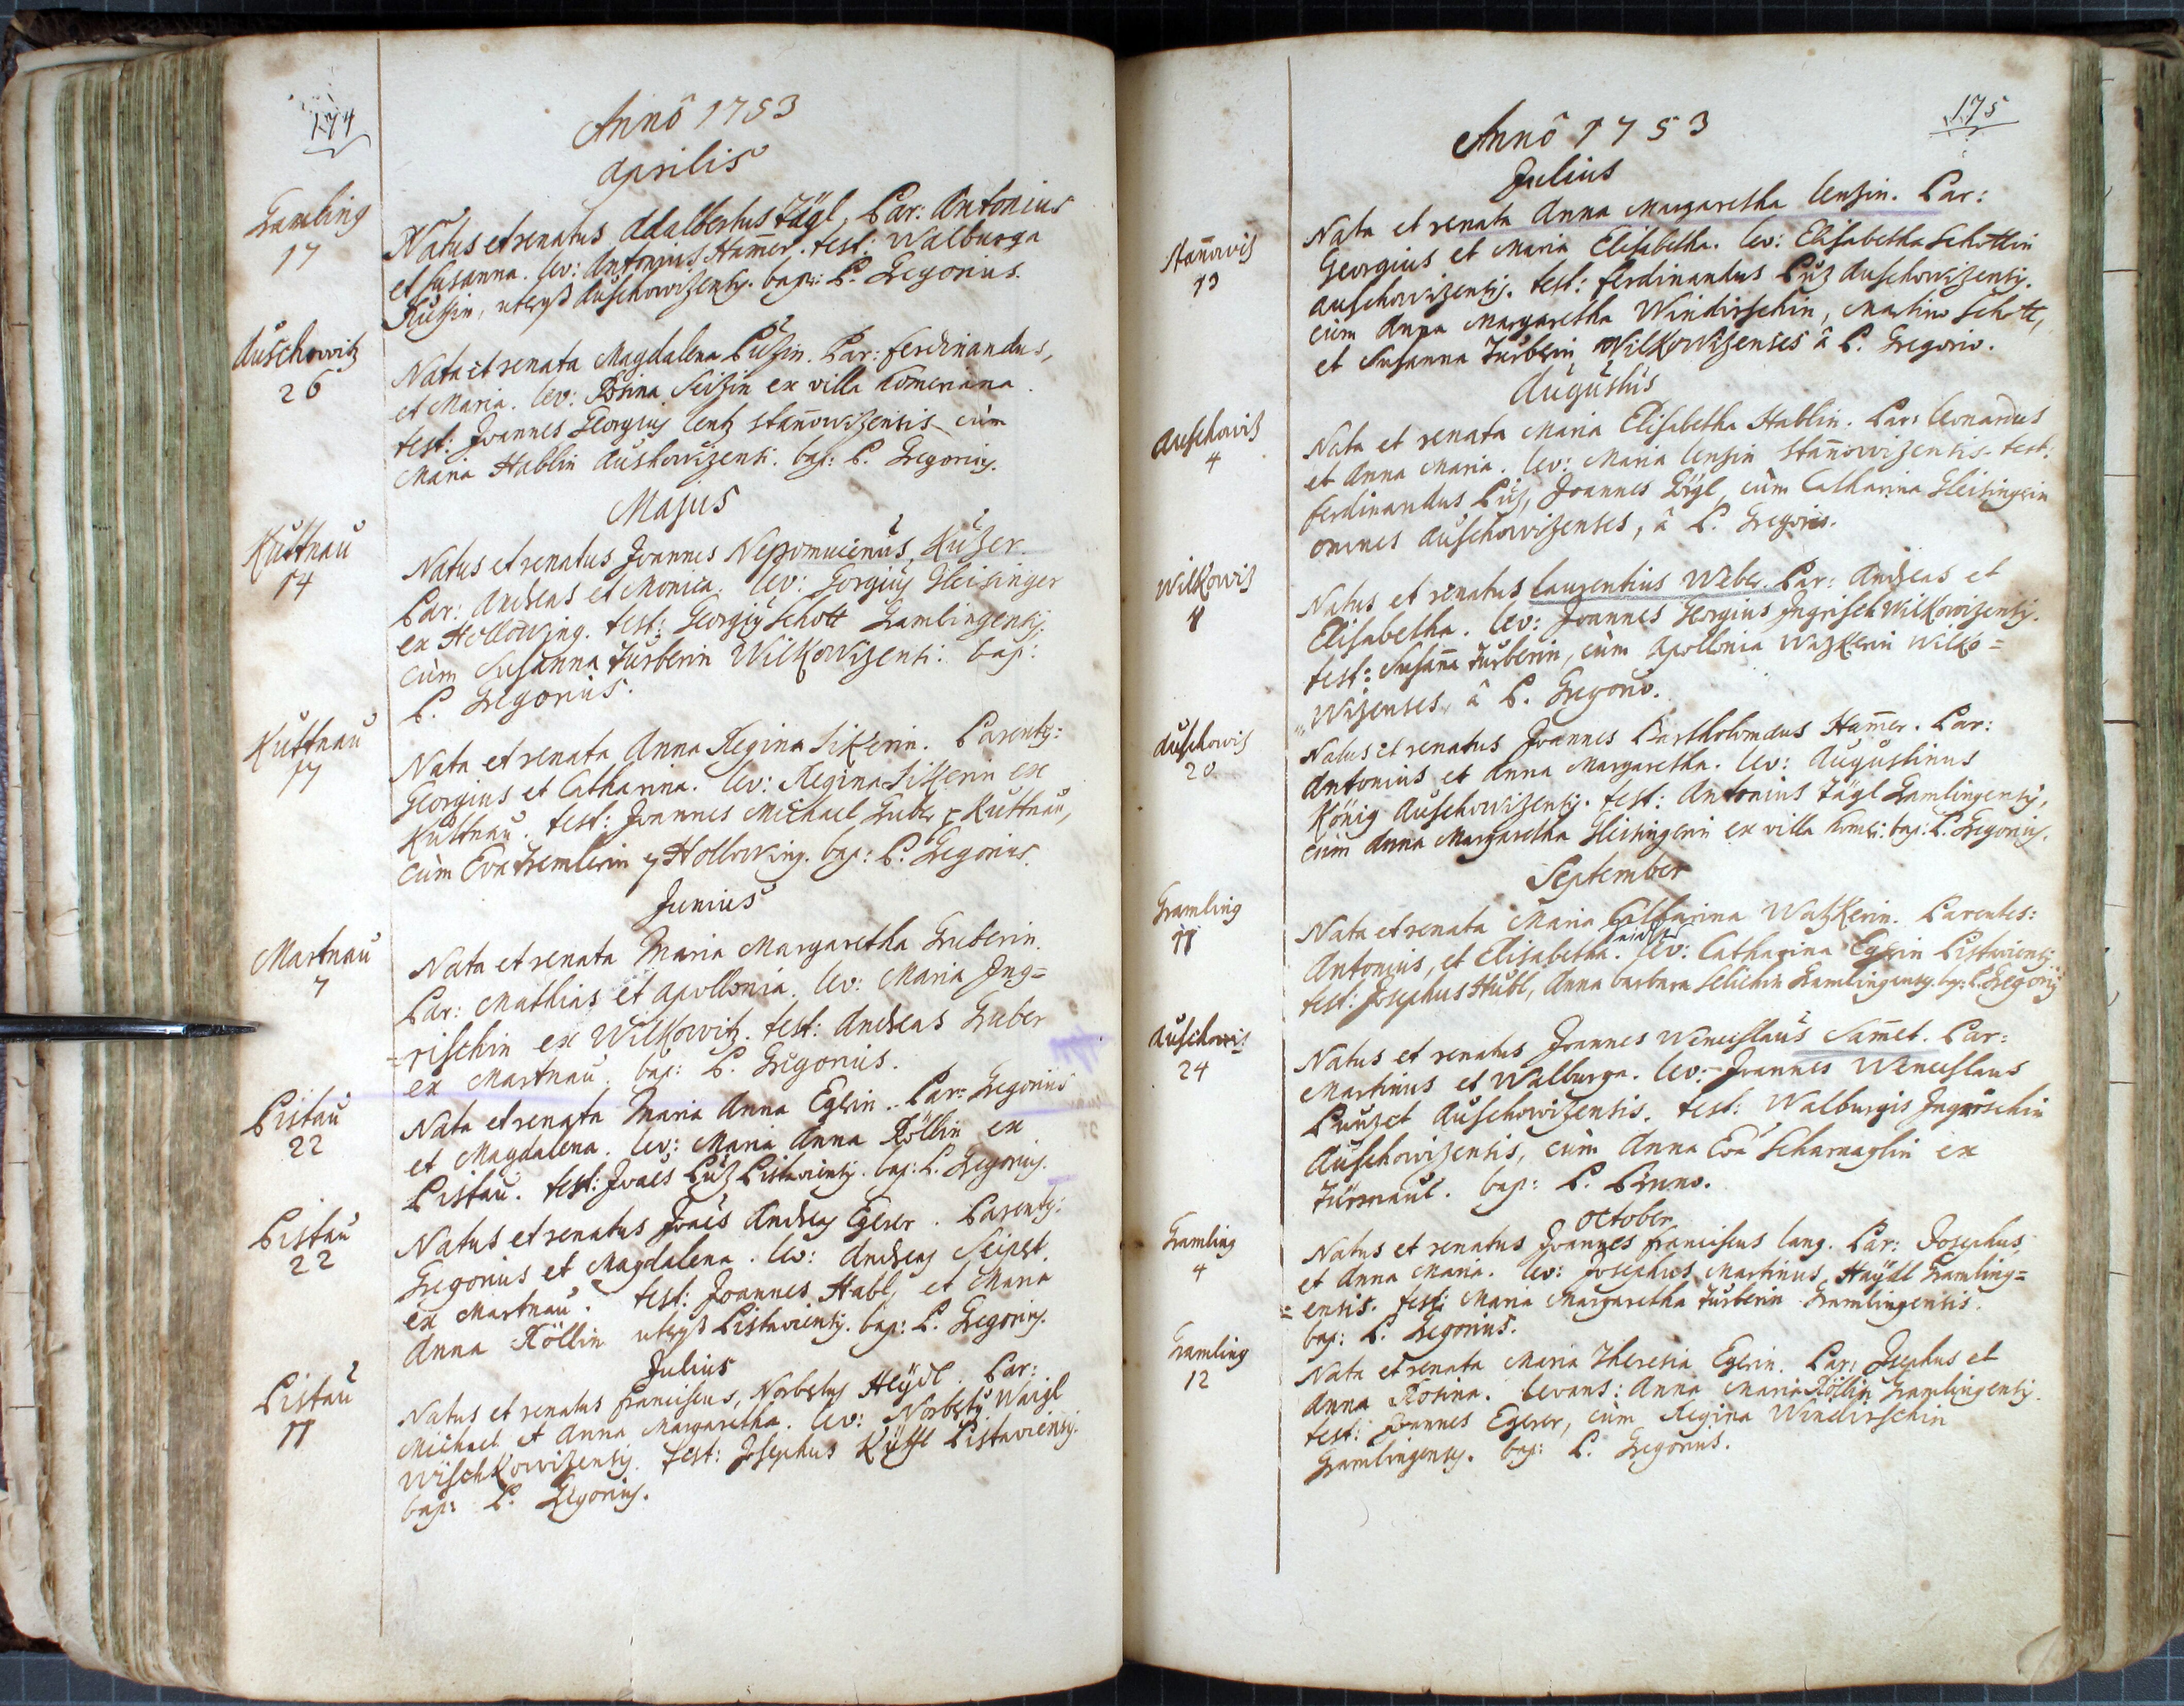 174
Annô 1753
Aprilis
Gamling
17
Natus et renatus Adalbertus Tägl, Par: Antonius
et Susanna. lev: Antonius Ham̄er. test: Walburga
utrq3 Auschowizensis. bap: P. Gregorius.
Auschowitz
26
Nata et renata Magdalena Puzin. Par: Ferdinandus,
et Maria. lev: Rosina Seizin ex villa Komeriana.
test: Joannes Georgius Lentz Stan̄owizensis cùm
Maria Hablin Auschowizensi. bap: P. Gregorius.
Majus
Kuttnau
14
Natus et renatus Joannes Neppomucenus, Kuzer.
Par: Andreas et Monica. lev: Gorgius Gleisinger
ex Hollowing. test: Georgius Schott Gamlingensis,
cùm Susanna Turberin Wilkowizensi. bap:
P. Gregorius.
Kuttnau
17
Nata et renata Anna Regina Sikerin. Parentes:
Georgius et Catharina. lev: Regina Sikerin ex
Kuttnau. test: Joannes Michael Gruber ex Kuttnau,
cùm Eva Tremlerin ex Hollowing. bap: P. Gregorius.
Junius
Martnau
7
Nata et renata Maria Margaretha Gruberin.
Par: Mathias et Apollonia. lev: Maria Ing=
=rischin ex Wilkowitz. test: Andreas Gruber
ex Martnau. bap: P. Gregorius.
Pistau
22
Nata et renata Maria Anna Egrin. Par: Gregorius
et Magdalena. lev: Maria Anna Köllin ex
Pistau. test: Joaes Puz Pistaviensis. bap: P. Gregorius.
Pistau
22
Natus et renatus Joaes Andreas Egerer. Parentes:
Gregorius et Magdalena. lev: Andreas Seipet
ex Martnau. test: Joannes Habl, et Maria
Anna Köllin utrq3 Pistaviensis. bap: P. Gregorius.
Julius
Pistau
11
Natus et renatus Franciscus, Norbertus Heÿdl. Par:
Michael et Anna Margaretha. lev: Norbertus Waigl
Wischkowizensis. test: Josephus Pistaviensis.
bap: P. Gregorius.
175
Annô 1753
Julius
Stan̄owiz
13
Nata et renata Anna Margaretha Lenzin. Par:
Georgius et Maria Elisabetha. lev: Elisabetha Schottin
Auschowizensis. test: Ferdinandus Puz Auschowizensis.
cùm Anna Margaretha Windirschin, Martino Schott,
et Susanna Turberin Wilkowizenses â P. Gregorio.
Augustus
Auschowiz
4
Nata et renata Maria Elisabetha Hablin. Par: Leonardus
et Anna Maria. lev: Maria Lenzin Stan̄owizensis. test:
Ferdinandus Puz, Joannes Gögl, cùm Catharina Gleisingerin
omnes Auschowizenses, â P. Gregorio.
Wilkowiz
8
Natus et renatus Laurentius Weber. Par: Andreas et
Elisabetha. lev: Joannes Georgius Ingrisch Wilkowizensis.
test: Susan̄a Turberin, cùm Apollonia Wazkerin Wilko=
„wizenses, â P. Gregorio.
Auschowiz
20
Natus et renatus Joannes Bartholomæus Ham̄er. Par:
Antonius et Anna Margaretha. lev: Augustinus
König Auschowizensis. test: Antonius Tägl Gamlingensis,
cùm Anna Margaretha Gleisingerin ex villa Kom: bap: P. Gregorius.
September
Gramling
11
Nata et renata Maria Catharina Watzkerin. Parentes:
Antonius, et Elisabetha. lev: Catharina Egrin Pistaviensis.
test: Josephus Hübl, Anna Barbara Gamlingensis. bap: P. Gregorius
Auschowiz
24
Natus et renatus Joannes Wenceslaus Sam̄et. Par:
Martinus et Walburga. lev: Joannes Wenceslaus
Auschowizensis. test: Walburgis Ingrischin
Auschowizensis, cùm Anna Eva Scharnaglin ex
Türmaul. bap: P. Bruno.
October
Gramling
4
Natus et renatus Joannes Franciscus Lang. Par: Josephus,
et Anna Maria. lev: Josephus Martinus Haÿdl Gramling=
=ensis. test: Maria Margaretha Turberin Gramlingensis.
bap: P. Gregorius.
Gramling
12
Nata et renata Maria Theresia Egrin. Par: Josephus et
Anna Rosina. Levans: Anna Maria Köllin Gramlingensis.
test: Joannes Egerer, cùm Regina Windirschin
Gramlingensis. bap: P. Gregorius.